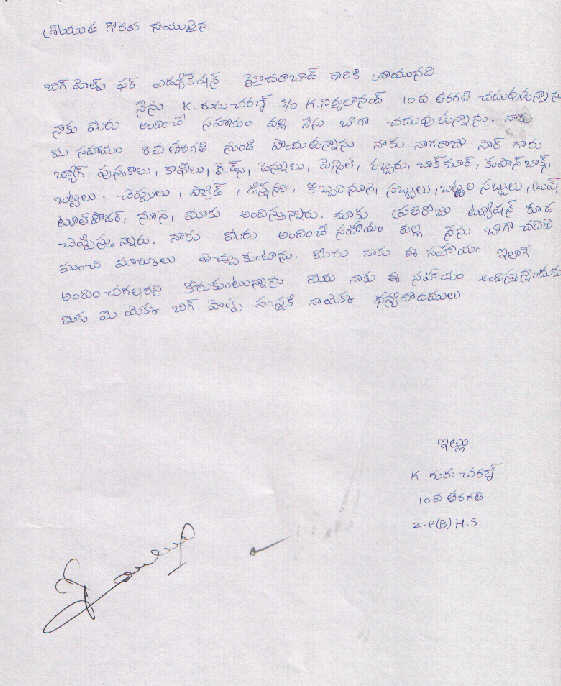 శ్రీయుత గౌరవ నాయులైన
బిగ్ హెల్ప్ ఫర్ ఎడ్యుకేషన్ హైదరాబాద్ వారికి వ్రాయునది
నేను K. గురు చరణ్ S/o K. 10వ తరగతి చదువుతున్నాను
నాకు మీరు అందించే సహాయం వల్ల నేను బాగా చదువుతున్నాను. నాకు
మీ సహాయం 8వ తరగతి నుండి పొందుతున్నాను నాకు నాగరాజు సార్ గారు
బ్యాగ్ పుస్తకాలు, కాపీలు, పెన్నులు, పెన్సిల్, రబ్బరు, బాక్స్,
బట్టలు, చెప్పులు, ప్యాడ్, కొబ్బరినూనె, సబ్బులు, బట్టల సబ్బులు,
నూనె, మాకు అందిస్తున్నారు. మాకు ప్రతిరోజు ట్యూషన్ కూడ
చెప్పిస్తున్నారు. నాకు మీరు అందించే సహాయం వల్ల నేను బాగా చదివి
మంచి మార్కులు తెచ్చుకుంటాను. మీరు నాకు ఈ సహాయం ఇలాగే
అందించగలరని కోరుకుంటున్నాను మీరు నాకు ఈ సహాయం అందిస్తున్నందుకు
మీ యొక్క బిగ్ హెల్ప్ సంస్థకి నాయొక్క ధన్యవాదములు
ఇట్లు
K గురు చరణ్
10వ తరగతి
Z.P(B) H.S